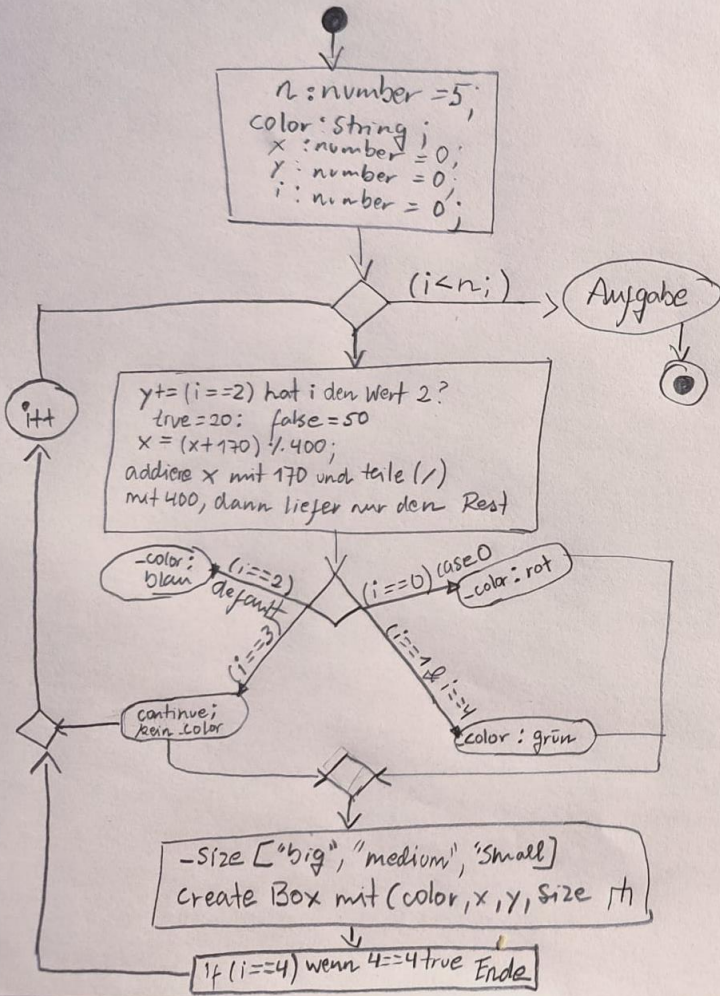 n : number = 5;
color : string ;
x : number = 0;
y : number = 0;
i : number = 0;
(i<n;)
Aufgabe
i++
y+= (i==2) hat i den Wert 2?
true=20: false=50
x = (x+170) % 400;
addiere x mit 170 und teile (/)
mit 400, dann liefer nur den Rest
-color:
blau
(i==2)
default
(i==0) case 0
-color: rot
(i==3)
(i==1 & i==4
continue;
kein color
color : grün
-Size ["big", "medium", "Small]
create Box mit (color, x, y, Size
If (i==4) wenn 4==4 true Ende